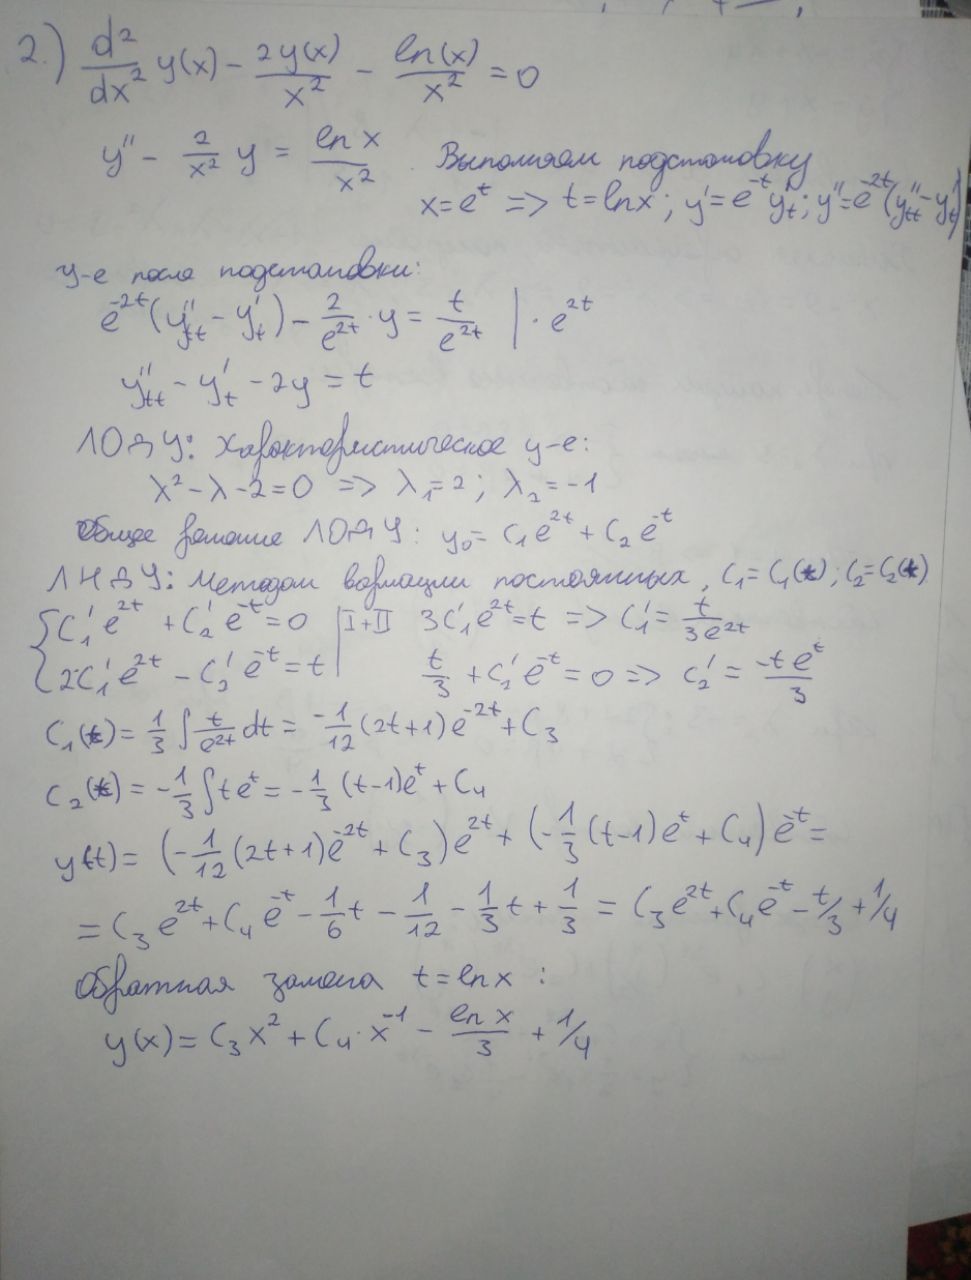 2.) d²/dx² y(x) - 2y(x)/x² - ln(x)/x² = 0
y'' - 2/x² y = ln x/x². Выполняем подстановку
x = e^t => t = ln x; y' = e^-t y'_t; y'' = e^-2t (y''_tt - y'_t)
у-е после подстановки:
e^-2t (y''_tt - y'_t) - 2/e^2t · y = t/e^2t | · e^2t
y''_tt - y'_t - 2y = t
ЛОДУ: Характеристическое у-е:
λ² - λ - 2 = 0 => λ₁ = 2; λ₂ = -1
Общее решение ЛОДУ: y₀ = C₁ e^2t + C₂ e^-t
ЛНДУ: Методом вариации постоянных, C₁ = C₁(t); C₂ = C₂(t)
{ C₁' e^2t + C₂' e^-t = 0 | I+II 3C₁' e^2t = t => C₁' = t/3e^2t
2C₁' e^2t - C₂' e^-t = t | t/3 + C₂' e^-t = 0 => C₂' = -t e^t/3
C₁(t) = 1/3 ∫ t/e^2t dt = -1/12 (2t+1) e^-2t + C₃
C₂(t) = -1/3 ∫ t e^t = -1/3 (t-1) e^t + C₄
y(t) = (-1/12 (2t+1) e^-2t + C₃) e^2t + (-1/3 (t-1) e^t + C₄) e^-t =
= C₃ e^2t + C₄ e^-t - 1/6 t - 1/12 - 1/3 t + 1/3 = C₃ e^2t + C₄ e^-t - t/3 + 1/4
Обратная замена t = ln x :
y(x) = C₃ x² + C₄ · x^-1 - ln x/3 + 1/4